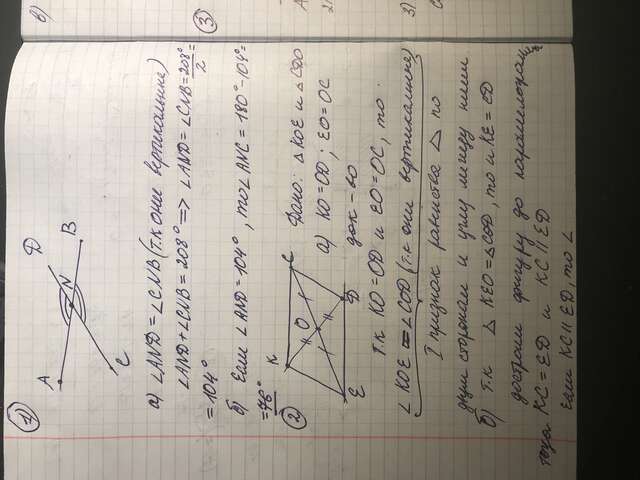 1)
A
D
N
B
C
а) ∠AND = ∠CNB (т.к они вертикальные)
∠AND + ∠CNB = 208° => ∠AND = ∠CNB = 208°/2 =
= 104°
б) Если ∠AND = 104°, то ∠ANC = 180° - 104° =
= 76°
2
K
C
O
E
D
Дано: △KOE и △CDO
а) KO = OD ; EO = OC
док-во
т.к KO = OD и EO = OC, то
∠KOE = ∠COD (т.к они вертикальные)
I признак равенства △ по
двум сторонам и углу между ними
б) т.к △KEO = △COD, то и KE = CD
достроим фигуру до
тогда KC = ED и KC || ED
Если KC || ED, то ∠
в)
3
3)